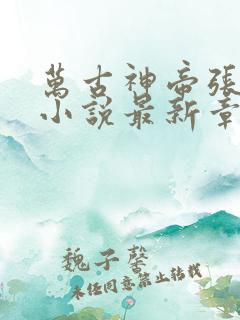 萬古神帝張
小說最新章
魏子馨
未經同意禁止轉載